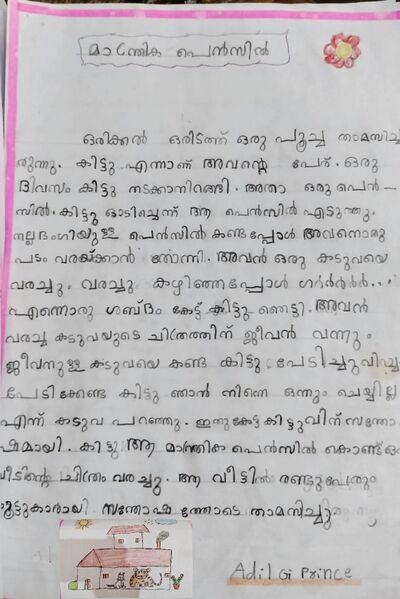 മാന്ത്രിക പെൻസിൽ
ഒരിക്കൽ ഒരിടത്ത് ഒരു പൂച്ച താമസിച്ചി
രുന്നു. കിട്ടു എന്നാണ് അവൻ്റെ പേര്. ഒരു
ദിവസം കിട്ടു നടക്കാനിറങ്ങി. അതാ ഒരു പെൻ-
സിൽ. കിട്ടു ഓടിച്ചെന്ന് ആ പെൻസിൽ എടുത്തു.
നല്ല ഭംഗിയുള്ള പെൻസിൽ കണ്ടപ്പോൾ അവനൊരു
പടം വരയ്ക്കാൻ തോന്നി. അവൻ ഒരു കടുവയെ
വരച്ചു. വരച്ചു കഴിഞ്ഞപ്പോൾ ഗർർർർർ...
എന്നൊരു ശബ്ദം കേട്ട് കിട്ടു ഞെട്ടി. അവൻ
വരച്ച കടുവയുടെ ചിത്രത്തിന് ജീവൻ വന്നു.
ജീവനുള്ള കടുവയെ കണ്ട കിട്ടു പേടിച്ചു വിറച്ചു
പേടിക്കേണ്ട കിട്ടു ഞാൻ നിന്നെ ഒന്നും ചെയ്യില്ല
എന്ന് കടുവ പറഞ്ഞു. ഇതുകേട്ട കിട്ടുവിന് സന്തോ
ഷമായി. കിട്ടു ആ മാന്ത്രിക പെൻസിൽ കൊണ്ട് ഒരു
വീടിൻ്റെ ചിത്രം വരച്ചു. ആ വീട്ടിൽ രണ്ടുപേരും
കൂട്ടുകാരായി സന്തോഷത്തോടെ താമസിച്ചു
Adil G Prince